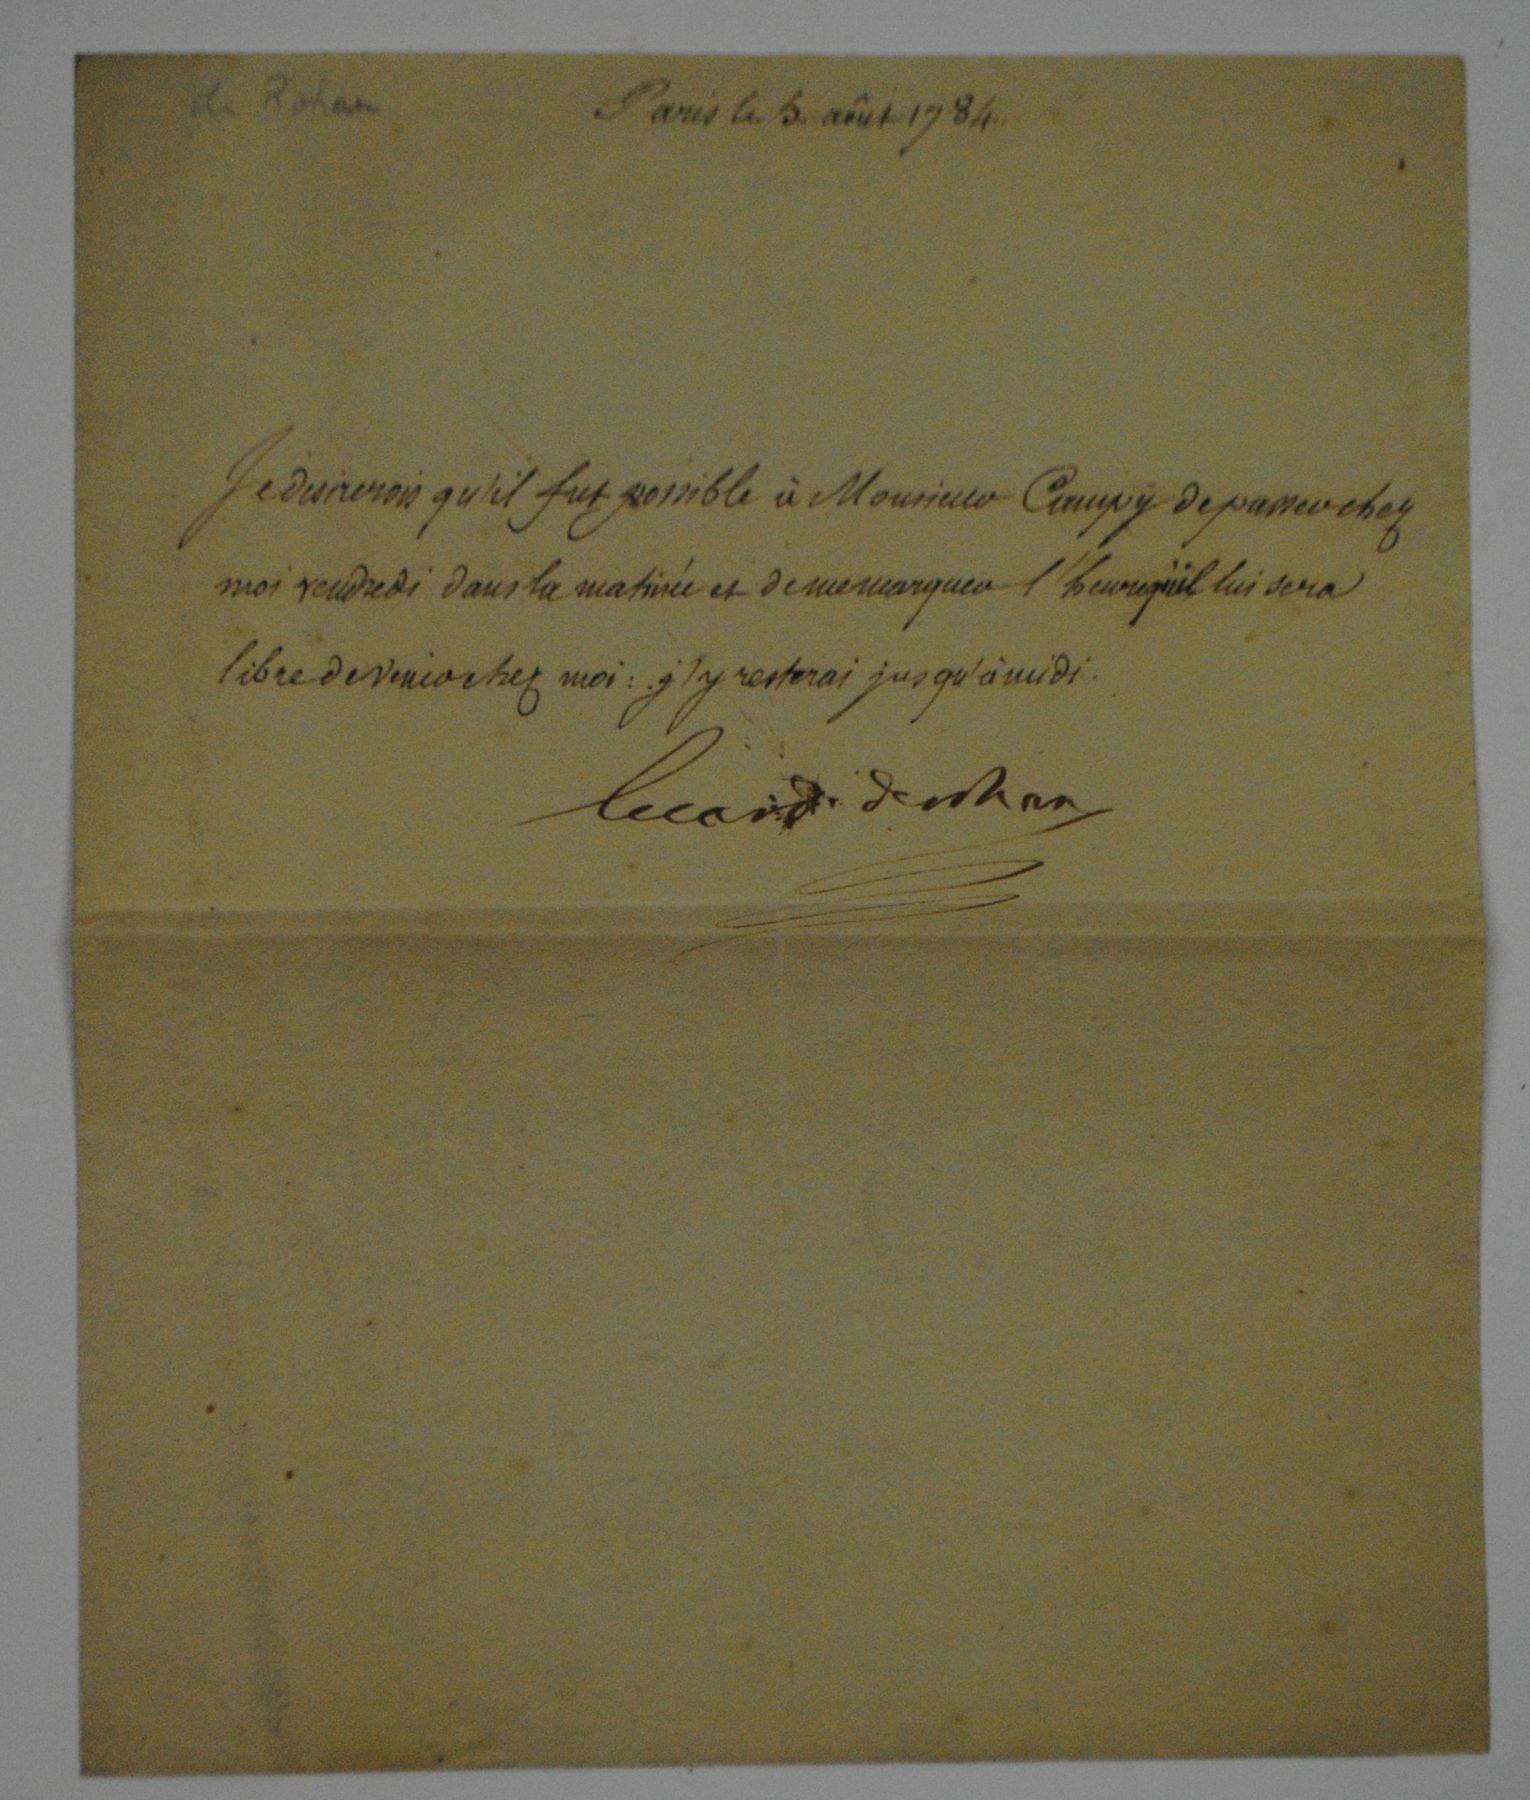 de Rohan
Paris le 5. août 1784.
Je desirerois qu'il fut possible à Monsieur Campy de passer chez
moi vendredi dans la matinée et de me marquer l'heure qu'il lui sera
libre de venir chez moi : j'y resterai jusqu'à midi.
le card. de rohan